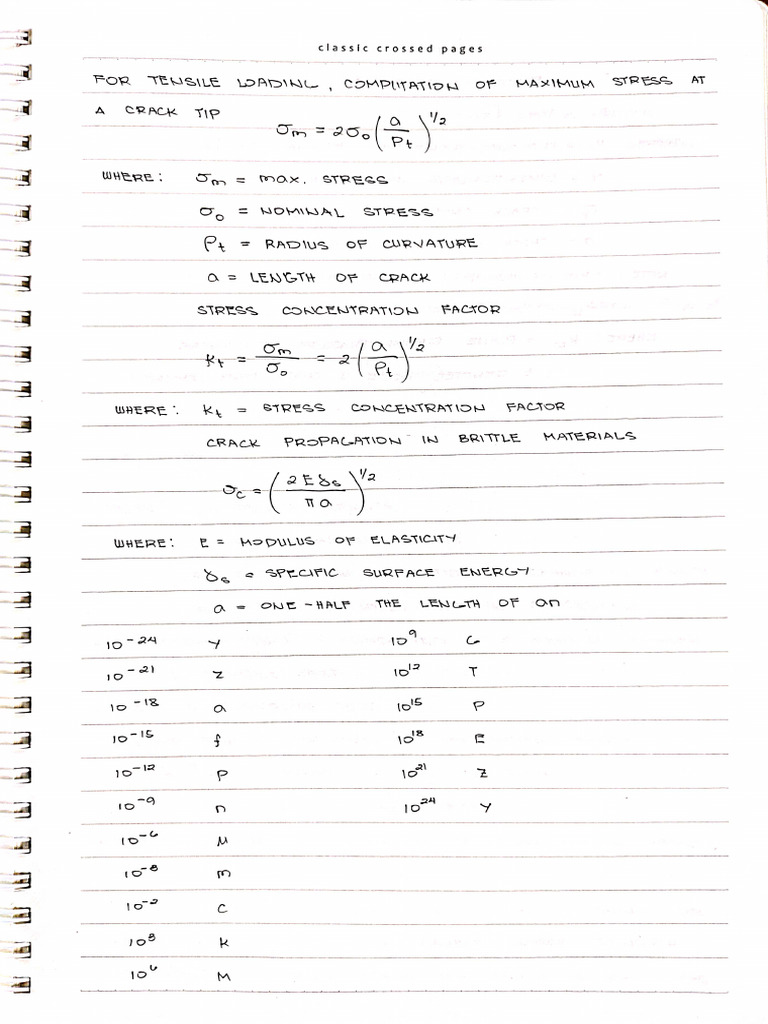 classic crossed pages
FOR TENSILE LOADING, COMPUTATION OF MAXIMUM STRESS AT
A CRACK TIP
σm = 2σ₀(a/ρt)^1/2
WHERE: σm = max. STRESS
σ₀ = NOMINAL STRESS
ρt = RADIUS OF CURVATURE
a = LENGTH OF CRACK
STRESS CONCENTRATION FACTOR
Kt = σm/σ₀ = 2(a/ρt)^1/2
WHERE: Kt = STRESS CONCENTRATION FACTOR
CRACK PROPAGATION IN BRITTLE MATERIALS
σc = (2Eγs/πa)^1/2
WHERE: E = MODULUS OF ELASTICITY
γs = SPECIFIC SURFACE ENERGY
a = ONE-HALF THE LENGTH OF an
10^-24 y 10^9 G
10^-21 z 10^12 T
10^-18 a 10^15 P
10^-15 f 10^18 E
10^-12 p 10^21 Z
10^-9 n 10^24 Y
10^-6 μ
10^-3 m
10^-2 c
10^3 k
10^6 M